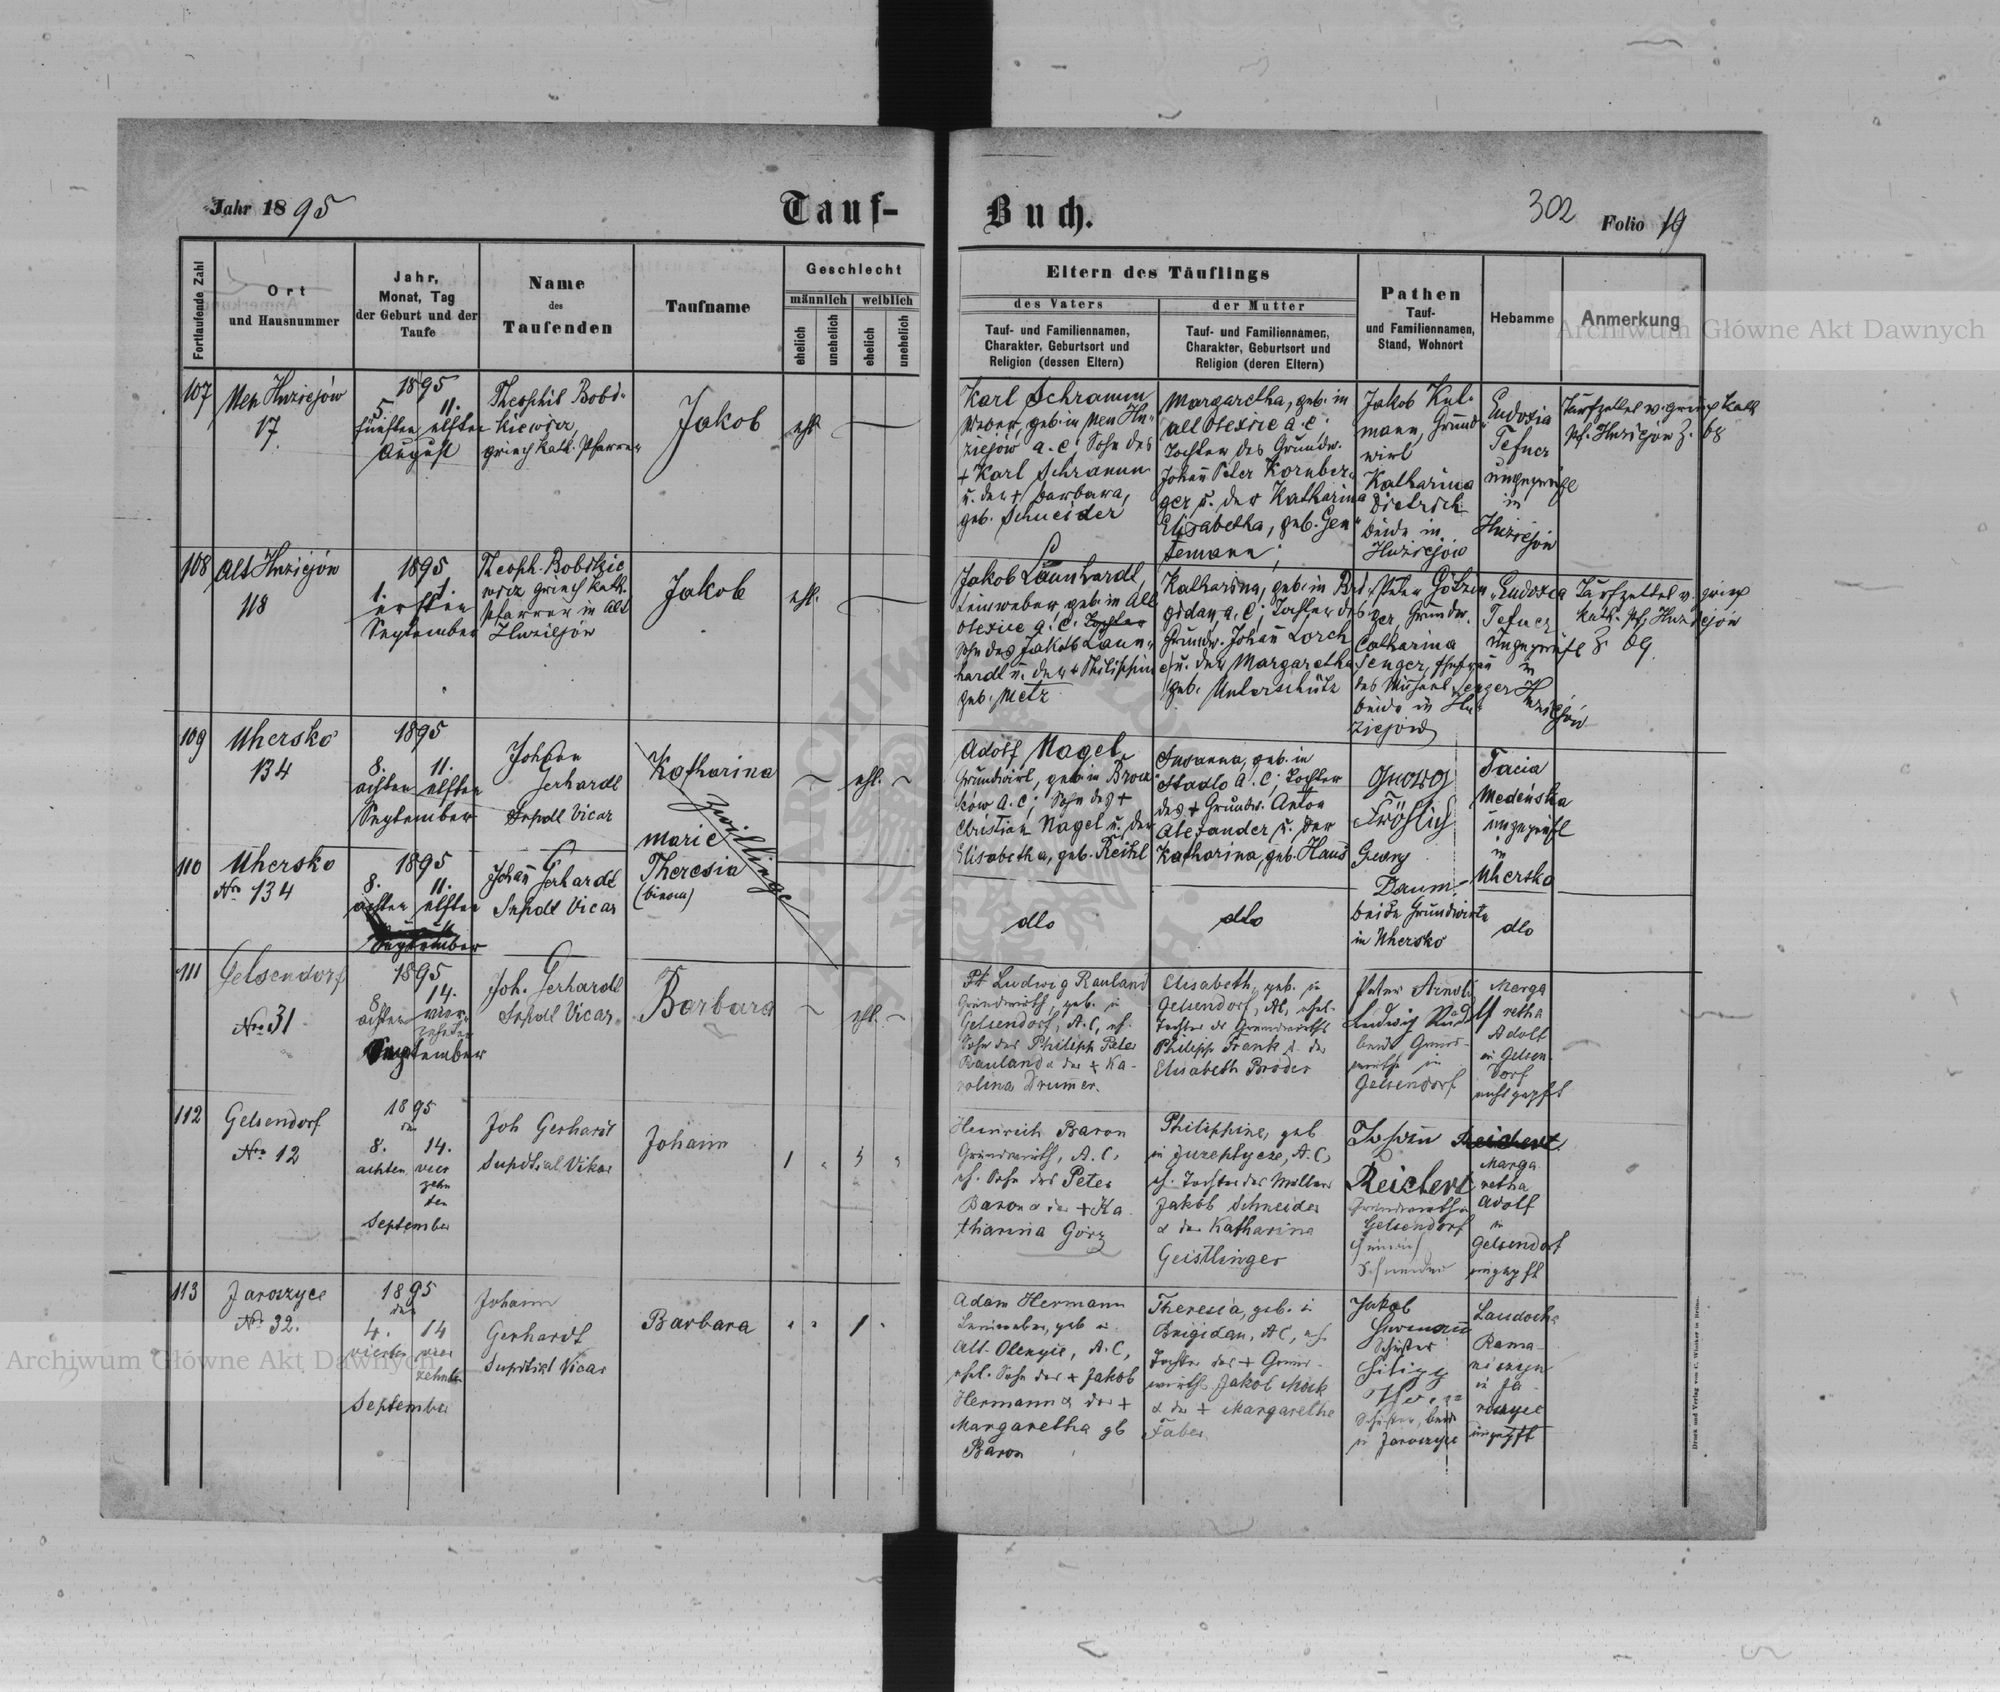 Jahr 1895
Tauf-
Buch.
302
Folio 19
Fortlaufende Zahl
Ort
und Hausnummer
Jahr,
Monat, Tag
der Geburt und der
Taufe
Name
des
Taufenden
Taufname
Geschlecht
männlich
weiblich
ehelich
unehelich
ehelich
unehelich
Eltern des Täuflings
des Vaters
der Mutter
Tauf- und Familiennamen,
Charakter, Geburtsort und
Religion (dessen Eltern)
Tauf- und Familiennamen,
Charakter, Geburtsort und
Religion (deren Eltern)
Pathen
Tauf-
und Familiennamen,
Stand, Wohnort
Hebamme
Anmerkung
Archiwum Główne Akt Dawnych
107
Neu Hnizejów
17
1895
5. 11.
fünften elften
August
Theophil Bobi-
kiewicz,
griech kath. Pfarrer
Jakob
ehl.
Karl Schramm
Weber, geb. in Neu Hn-
ziejów A. C; Sohn des
+ Karl Schramm
u. der + Barbara,
geb. Schneider
Margaretha, geb. in
A. C.
Tochter des Grundw.
Johann Peter Kornber-
ger u. der Katharina
Elisabetha, geb. Gen-
semann;
Jakob Kul-
mann, Grund-
wirt
Katharina
Dietrich
beide in
Eudoxia
Tefucz
ungeprüft
in
Taufzettel v. griech kath
108
118
1895
1. 1.
ersten
September
Theoph. Bobikie
wicz griech kath.
Pfarrer in Alt
Jakob
ehl.
Jakob Launhardt,
Leinweber, geb. in Alt
A. C. Tochter
Sohn des Jakob Laun-
hardt u. der + Philippin
geb. Metz
Katharina, geb. in Bri-
gidau, A. C; Tochter des
Grundw. Johann Lorch
u. der Margaretha
geb. Unterschütz
Peter
Grundw.
Catharina
Senger, Ehefrau
des Michael Senger
beide in
Eudoxia
Tefucz
ungeprüft
in
Taufzettel v. griech
kath. Pf.
109
Uhersko
134
1895
8. 11.
achten elften
September
Johann
Gerhardt
Supdtl Vicar
Katharina
Zwillinge
ehl.
Adolf Nagel,
Grundwirt, geb. in
A. C; Sohn des +
Christian Nagel u. der
Elisabetha, geb. Reikl
Susanna, geb. in
Stadlo A. C; Tochter
des + Grundw. Anton
Alexander u. der
Katharina, geb. Haus
Georg
Fröhlich
Tacia
Medeńska
ungeprüft
in
Uhersko
110
Uhersko
Nro 134
1895
8. 11.
achten elften
September
Johann Gerhardt
Supdtl Vicar
Marie
Theresia
dto
dto
Georg
Daum -
beide Grundwirte
in Uhersko
dto
111
Gelsendorf
Nro 31
1895
8. 14.
achten vier-
zehnten
September
Joh. Gerhardt
Supdtl Vicar
Barbara
ehl.
Ludwig Rauland
Grundwirth, geb. in
Gelsendorf, A. C, eh.
Sohn des Philipp Peter
Rauland u der + Ka-
rolina Drumer.
Elisabeth, geb. in
Gelsendorf, AC, ehel.
Tochter des Grundwirths
Philipp Frank u. der
Elisabeth Bröder
Peter Arnold
Ludwig
beide Grund-
wirthe in
Gelsendorf
Marga
retha
Adolf
in Gelsen
dorf
112
Gelsendorf
Nro 12
1895
den
8. 14.
achten vier
zehn
ten
September
Joh Gerhardt
Supdtial Vikar
Johann
1
Heinrich Baron
Grundwirth, A. C,
eh. Sohn des Peter
Baron u der + Ka
tharina Görz
Philippine, geb
in A. C,
eh. Tochter des Müllers
Jakob Schneider
u der Katharina
Geistlinger
Johann Reichert
Reichert
Grundwirth in
Gelsendorf
Heinrich
Schneider
Marga
retha
Adolf
in
Gelsendorf
113
Jaroszyce
No 32.
1895
den
4. 14
vierten vier
zehnten
September
Johann
Gerhardt
Supdtial Vicar
Barbara
1
Adam Hermann
geb in
Alt. A. C,
ehel. Sohn des + Jakob
Hermann u der +
Margaretha gb
Baron
Theresia, geb. in
Brigidau, AC, eh.
Tochter des + Grund-
wirths Jakob Mock
u der + Margarethe
Faber
Jakob
Hermann
Schuster
beide
in Jaroszyce
in Ja
roszyce
Druck und Verlag von C. Winiker in Brünn.
Archiwum Główne Akt Dawnych